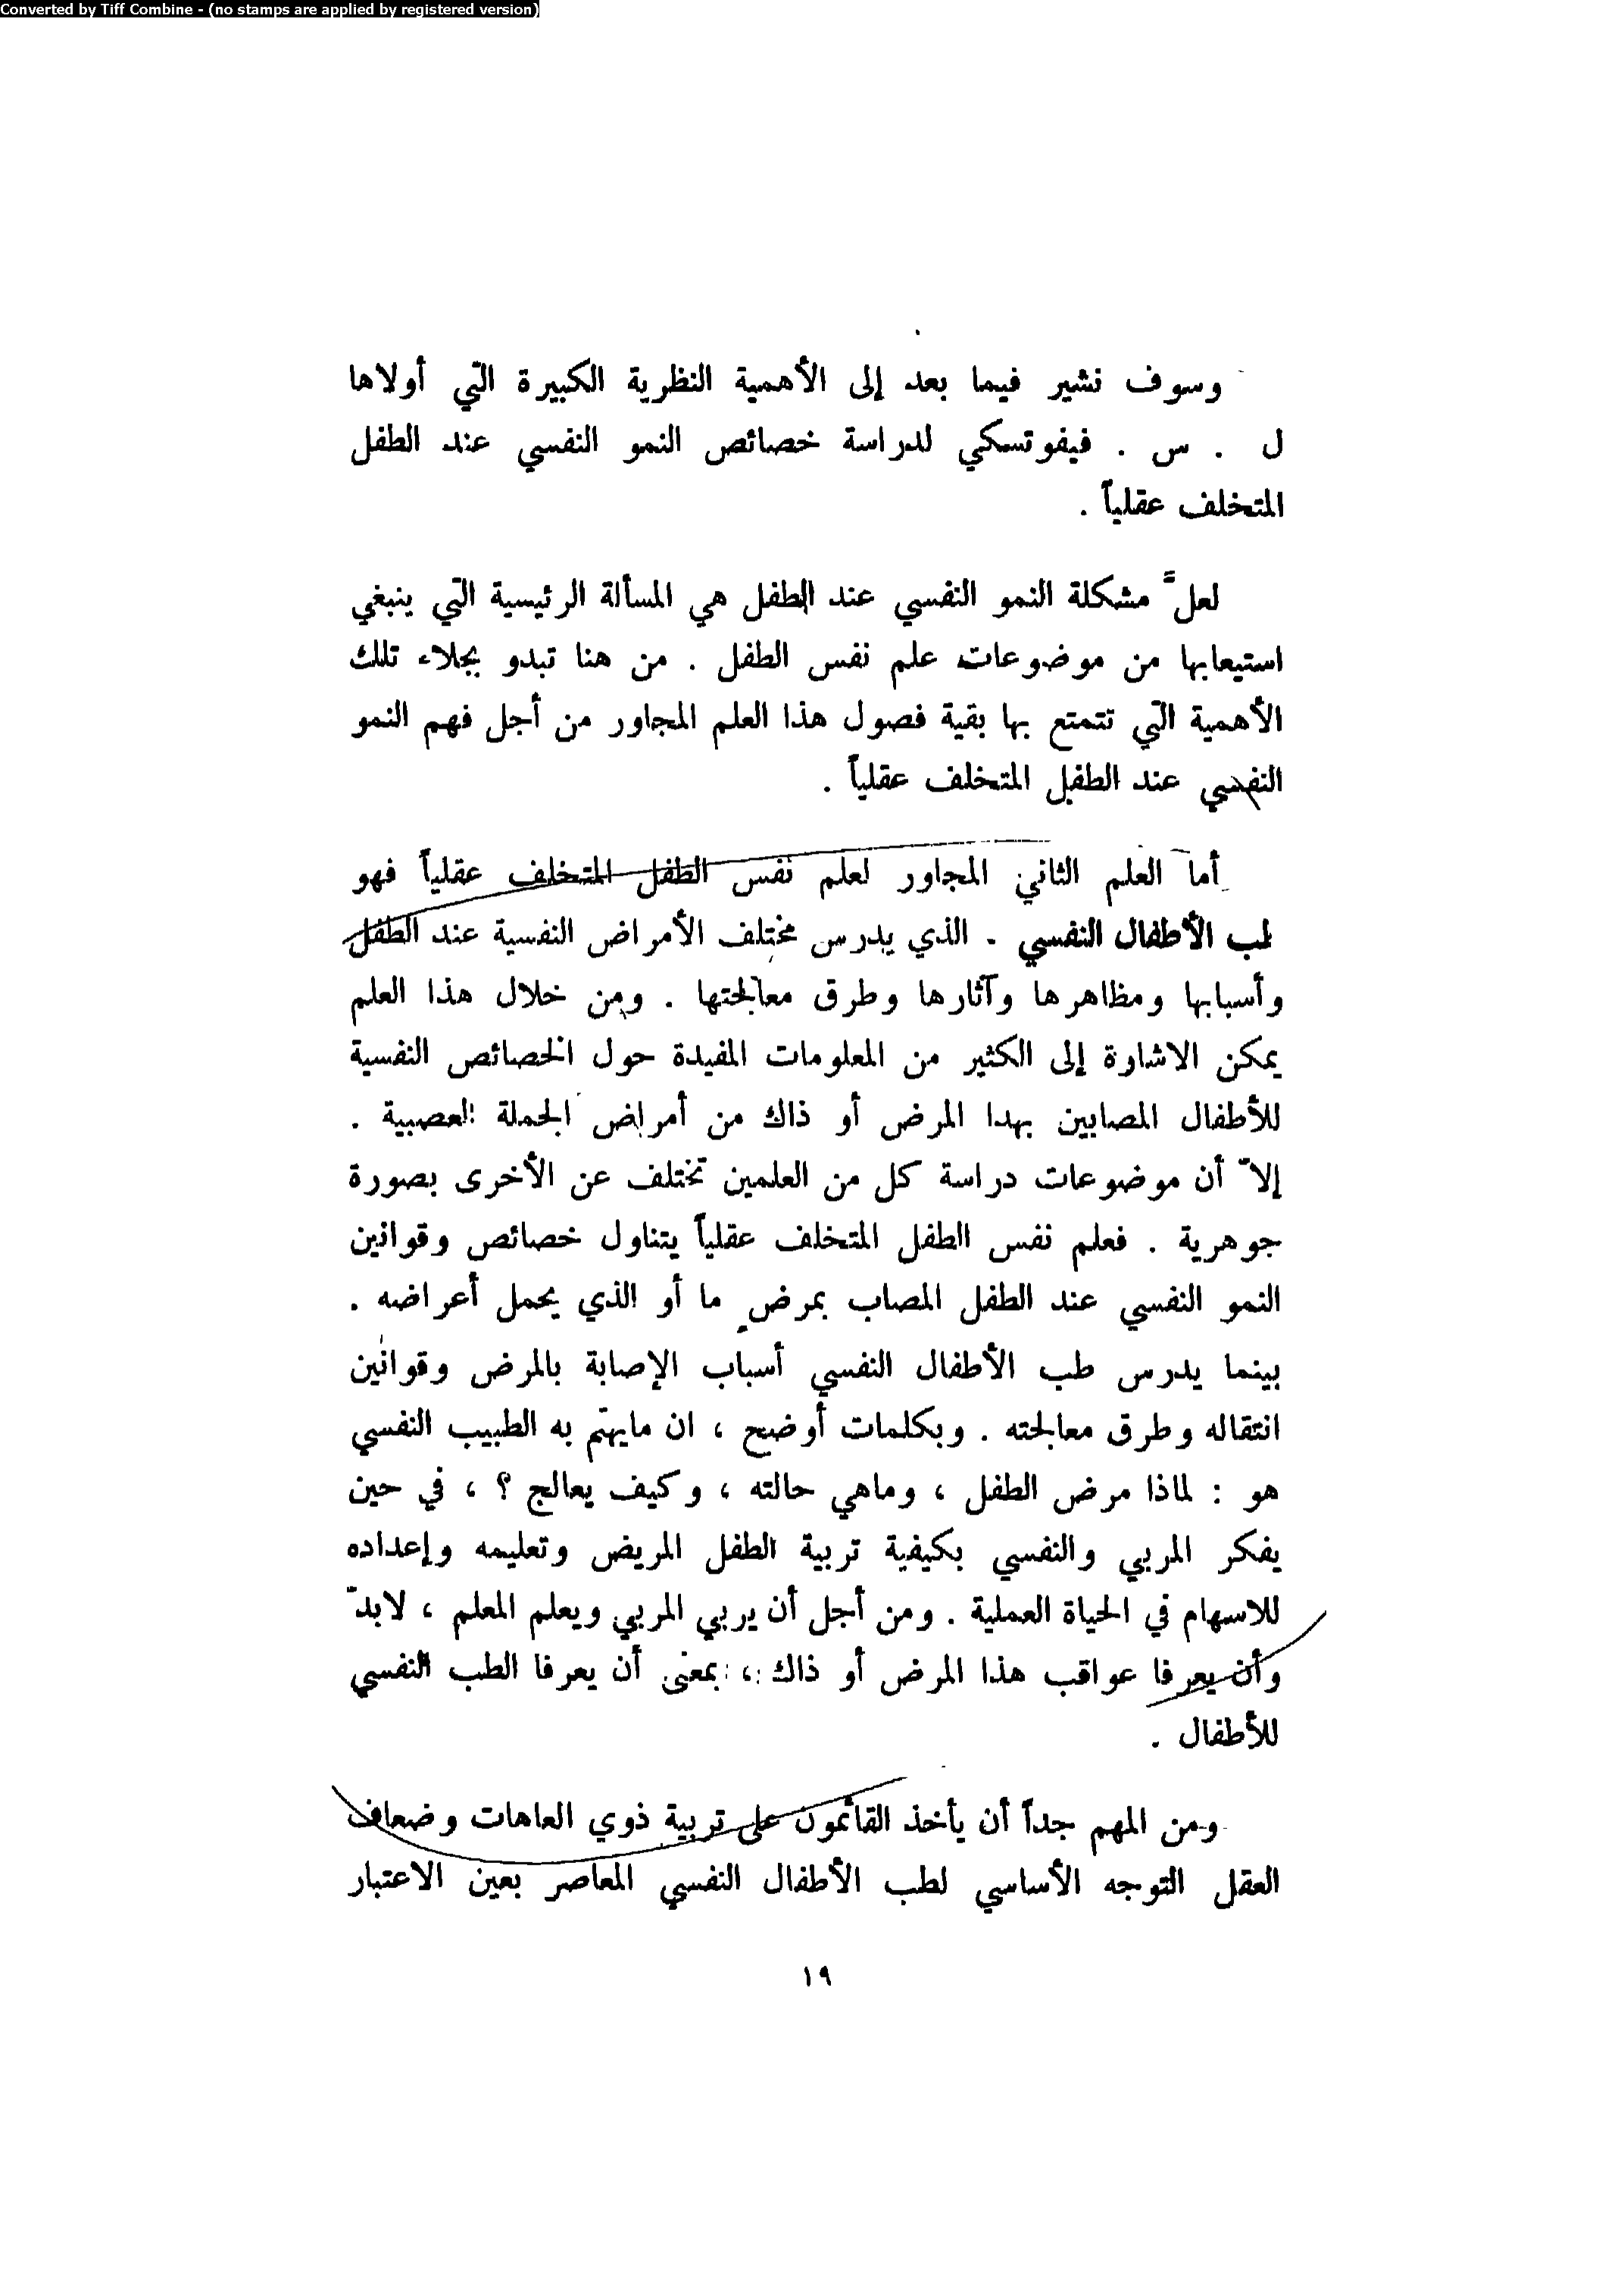 Converted by Tiff Combine - (no stamps are applied by registered version)
وسوف نشير فيما بعد إلى الأهمية النظرية الكبيرة التي أولاها
ل . س . فيفوتسكي لدراسة خصائص النمو النفسي عند الطفل
المتخلف عقلياً .
لعلّ مشكلة النمو النفسي عند الطفل هي المسألة الرئيسية التي ينبغي
استيعابها من موضوعات علم نفس الطفل . من هنا تبدو بجلاء تلك
الأهمية التي تتمتع بها بقية فصول هذا العلم المجاور من أجل فهم النمو
النفسي عند الطفل المتخلف عقلياً .
أما العلم الثاني المجاور لعلم نفس الطفل المتخلف عقلياً فهو
طب الأطفال النفسي . الذي يدرس مختلف الأمراض النفسية عند الطفل
وأسبابها ومظاهرها وآثارها وطرق معالجتها . ومن خلال هذا العلم
يمكن الاشارة إلى الكثير من المعلومات المفيدة حول الخصائص النفسية
للأطفال المصابين بهدا المرض أو ذاك من أمراض الجملة العصبية .
إلاّ أن موضوعات دراسة كل من العلمين تختلف عن الأخرى بصورة
جوهرية . فعلم نفس الطفل المتخلف عقلياً يتناول خصائص وقوانين
النمو النفسي عند الطفل المصاب بمرضٍ ما أو الذي يحمل أعراضه .
بينما يدرس طب الأطفال النفسي أسباب الإصابة بالمرض وقوانين
انتقاله وطرق معالجته . وبكلمات أوضح ، ان مايهتم به الطبيب النفسي
هو : لماذا مرض الطفل ، وماهي حالته ، وكيف يعالج ؟ ، في حين
يفكر المربي والنفسي بكيفية تربية الطفل المريض وتعليمه وإعداده
للاسهام في الحياة العملية . ومن أجل أن يربي المربي ويعلم المعلم ، لابدّ
وأن يعرفا عواقب هذا المرض أو ذاك ، بمعنى أن يعرفا الطب النفسي
للأطفال .
ومن المهم جداً أن يأخذ القائمون على تربية ذوي العاهات وضعاف
العقل التوجه الأساسي لطب الأطفال النفسي المعاصر بعين الاعتبار
١٩